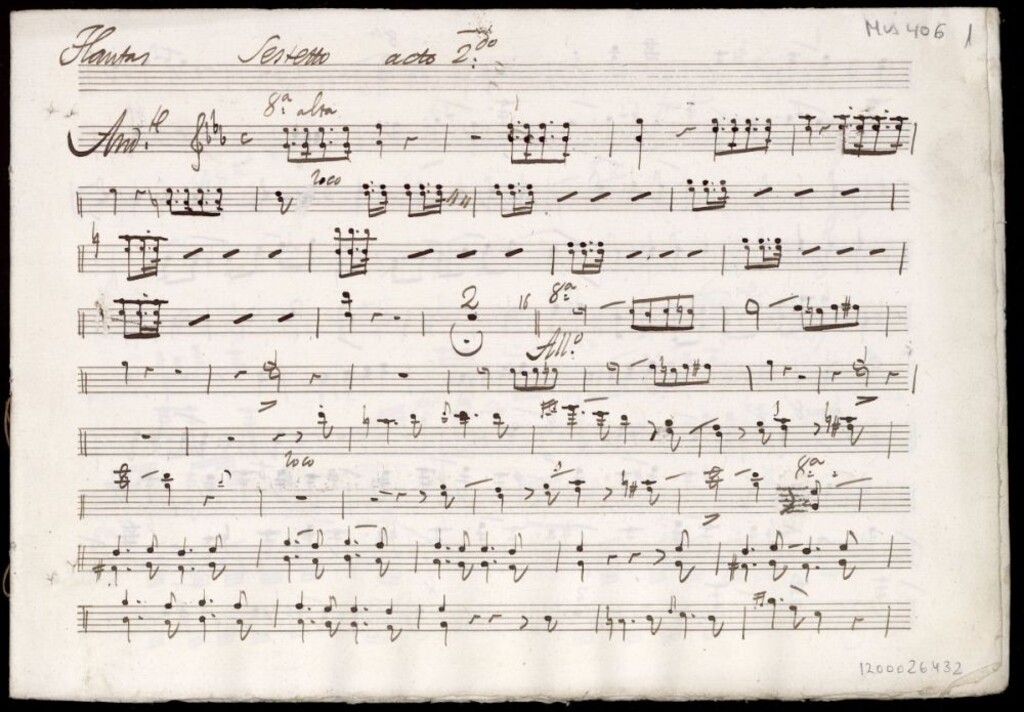 Mus 406 1
Flautas Sestetto acto 2.do
And.te C 8.a alta 1
loco
2 16 8.a
All.o
loco 8.a
1200026432